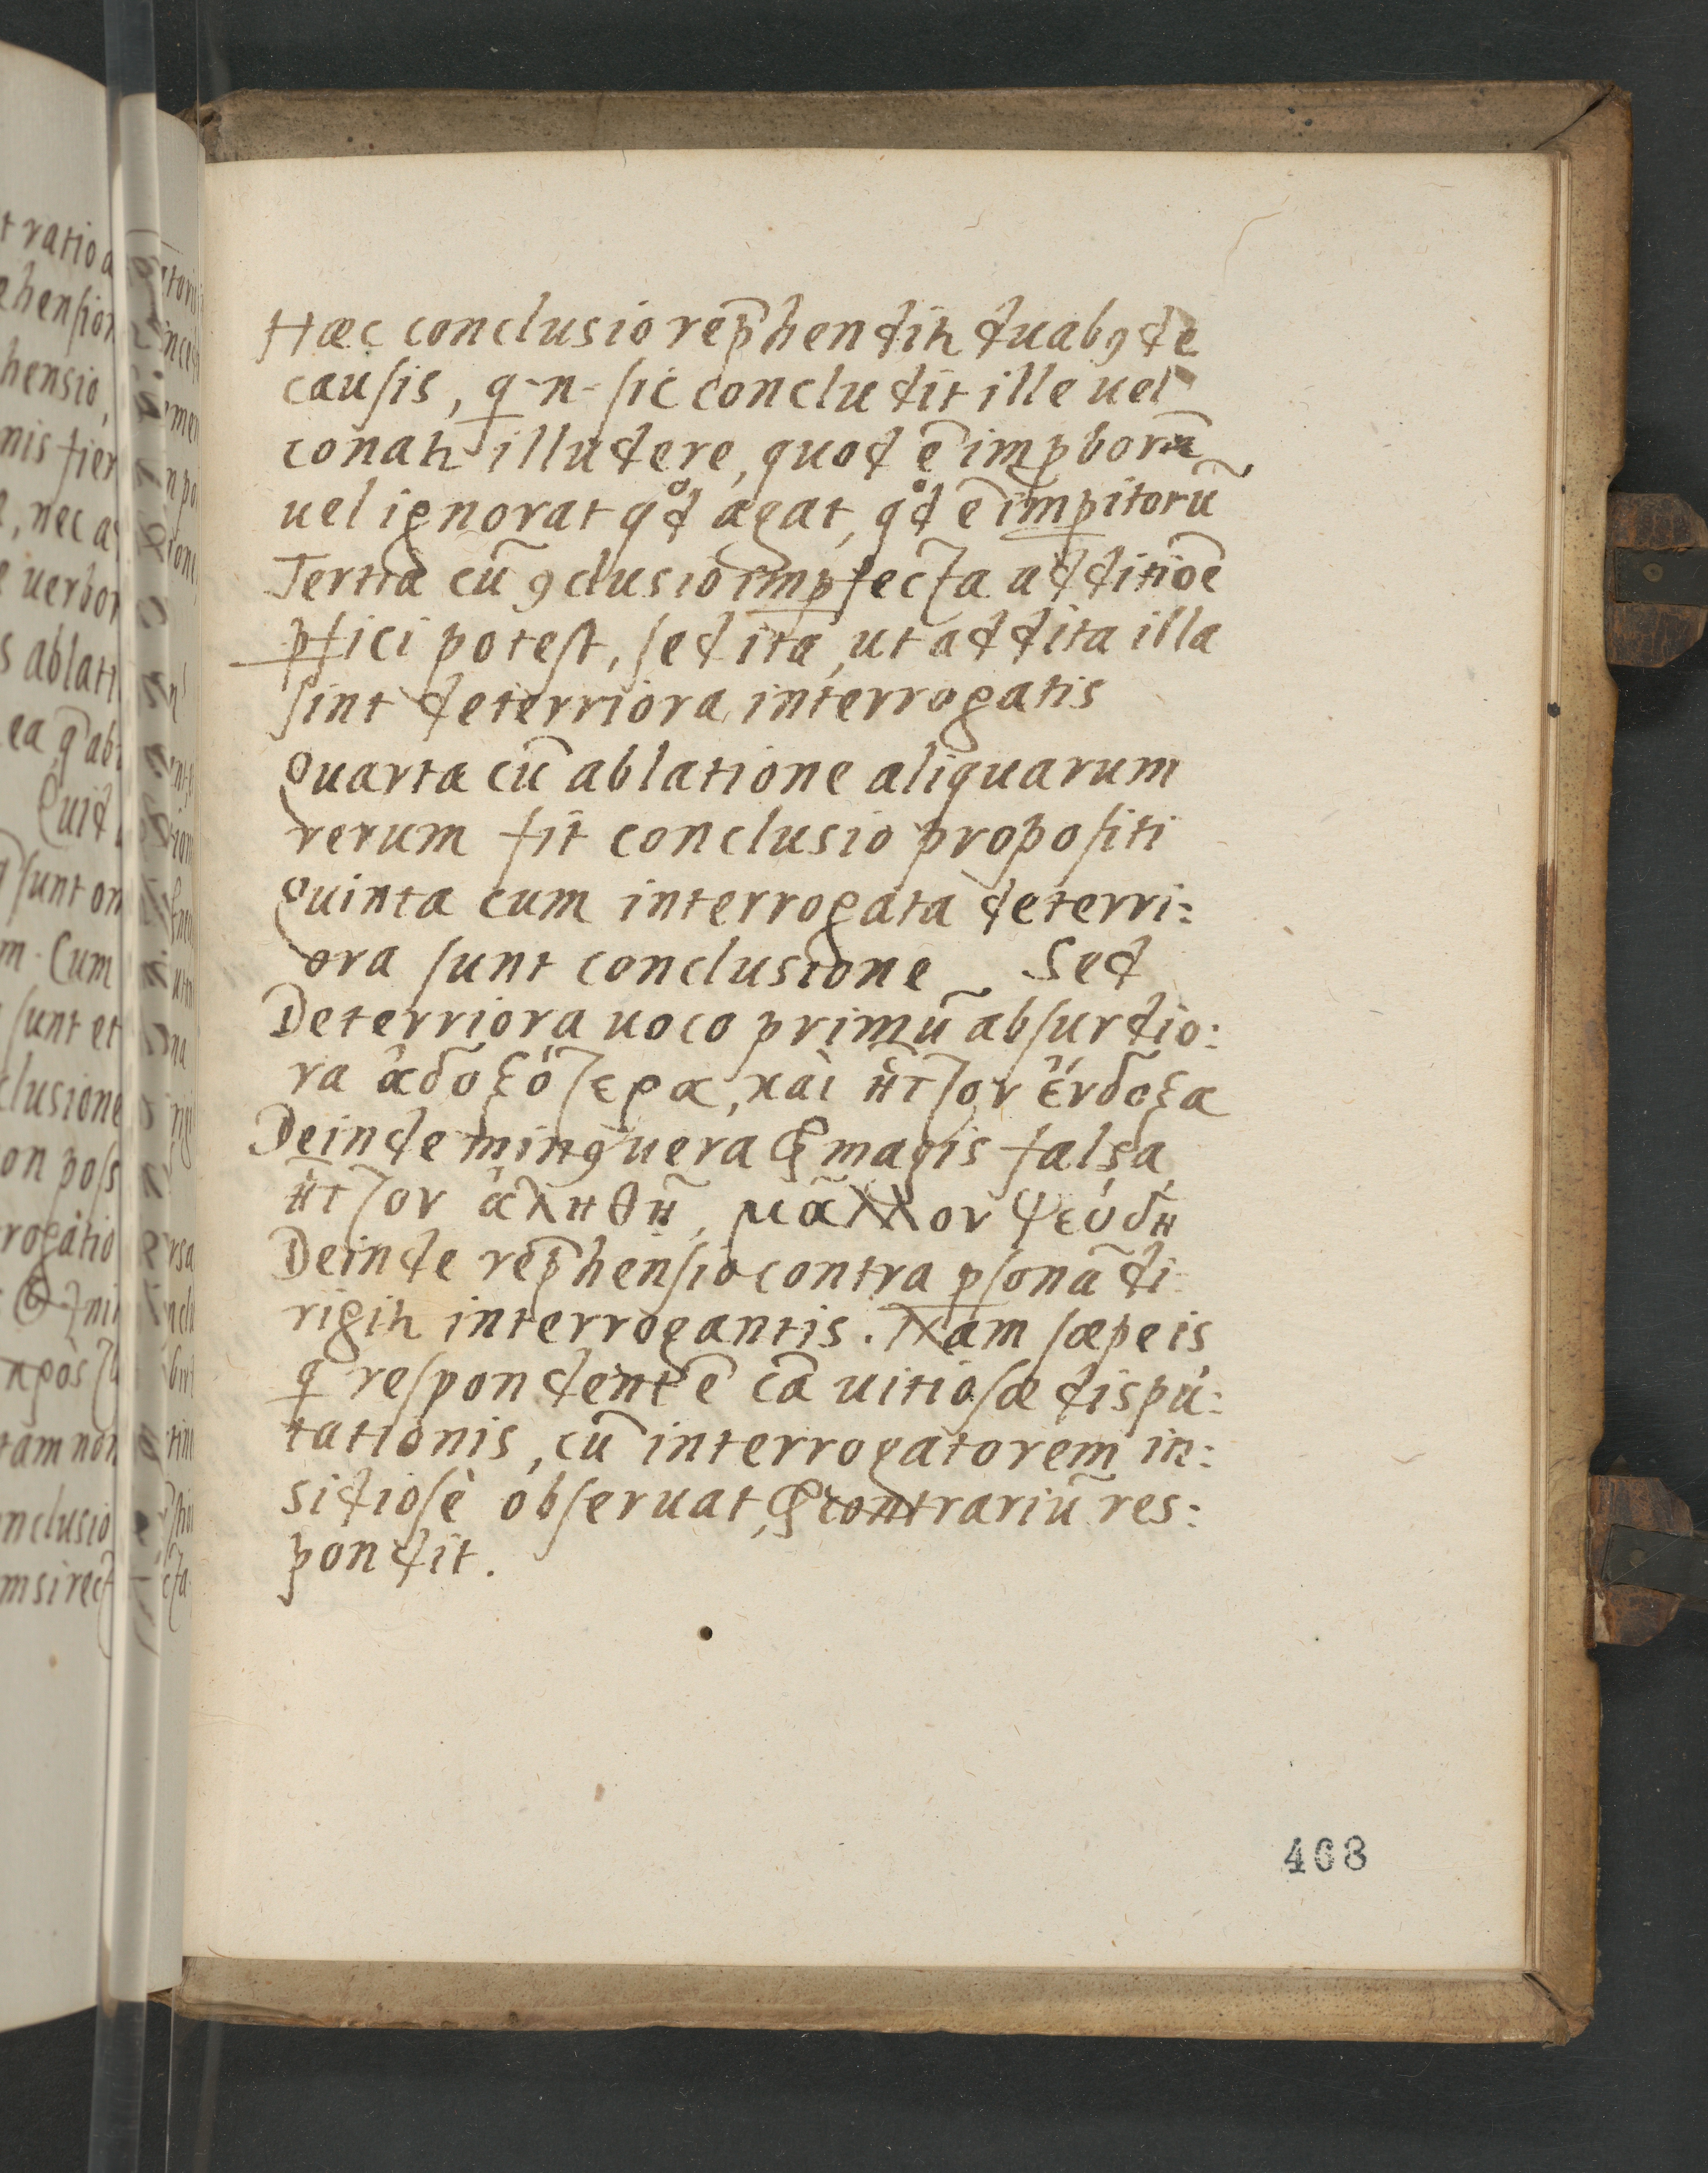 Hæc conclusio rep̄hendit͛ duabꝰ de
causis, q-n-sic concludit ille uel
conat͛ illudere, quod ē imꝓborū
uel ignorat qͦd agat, qͦd ē imꝑitorū
Tertia cū ꝯclusio imꝑfecta additiōe
ꝑfici potest, sed ita, ut addita illa
sint deterriora interrogatis
Quarta cū ablatione aliquarum
rerum fit conclusio propositi
Quinta cum interrogata deterri:
ora sunt conclusione Sed
Deterriora uoco primū absurdio:
ra ἀδοξότερα, καὶ ἧττον ἔνδοξα
Deinde minꝰ uera & magis falsa
ἧττον ἀληθῆ, μᾶλλον ψεύδη
Deinde rep̄hensio contra ꝑsonā di
rigit͛ interrogantis. Nam sæpe is
q respondent ē cā uitiosæ dispu:
tationis, cū interrogatorem in:
sidiosè obseruat, & contrariū res:
pondit.
468